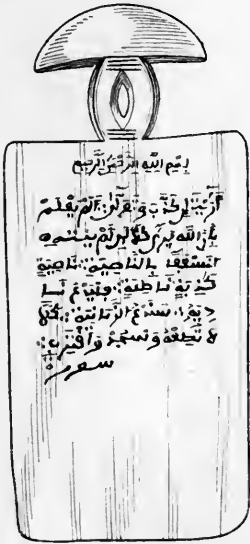 بسم الله الرحمن الرحيم
أريت إن كذب وتولى ألم يعلم
بأن الله يرى كلا لئن لم ينته
لنسفعا بالناصية ناصية
كذبة خاطئة فليدع نا
ديه سندع الزبانية كلا
لا تطعه واسجد واقترب